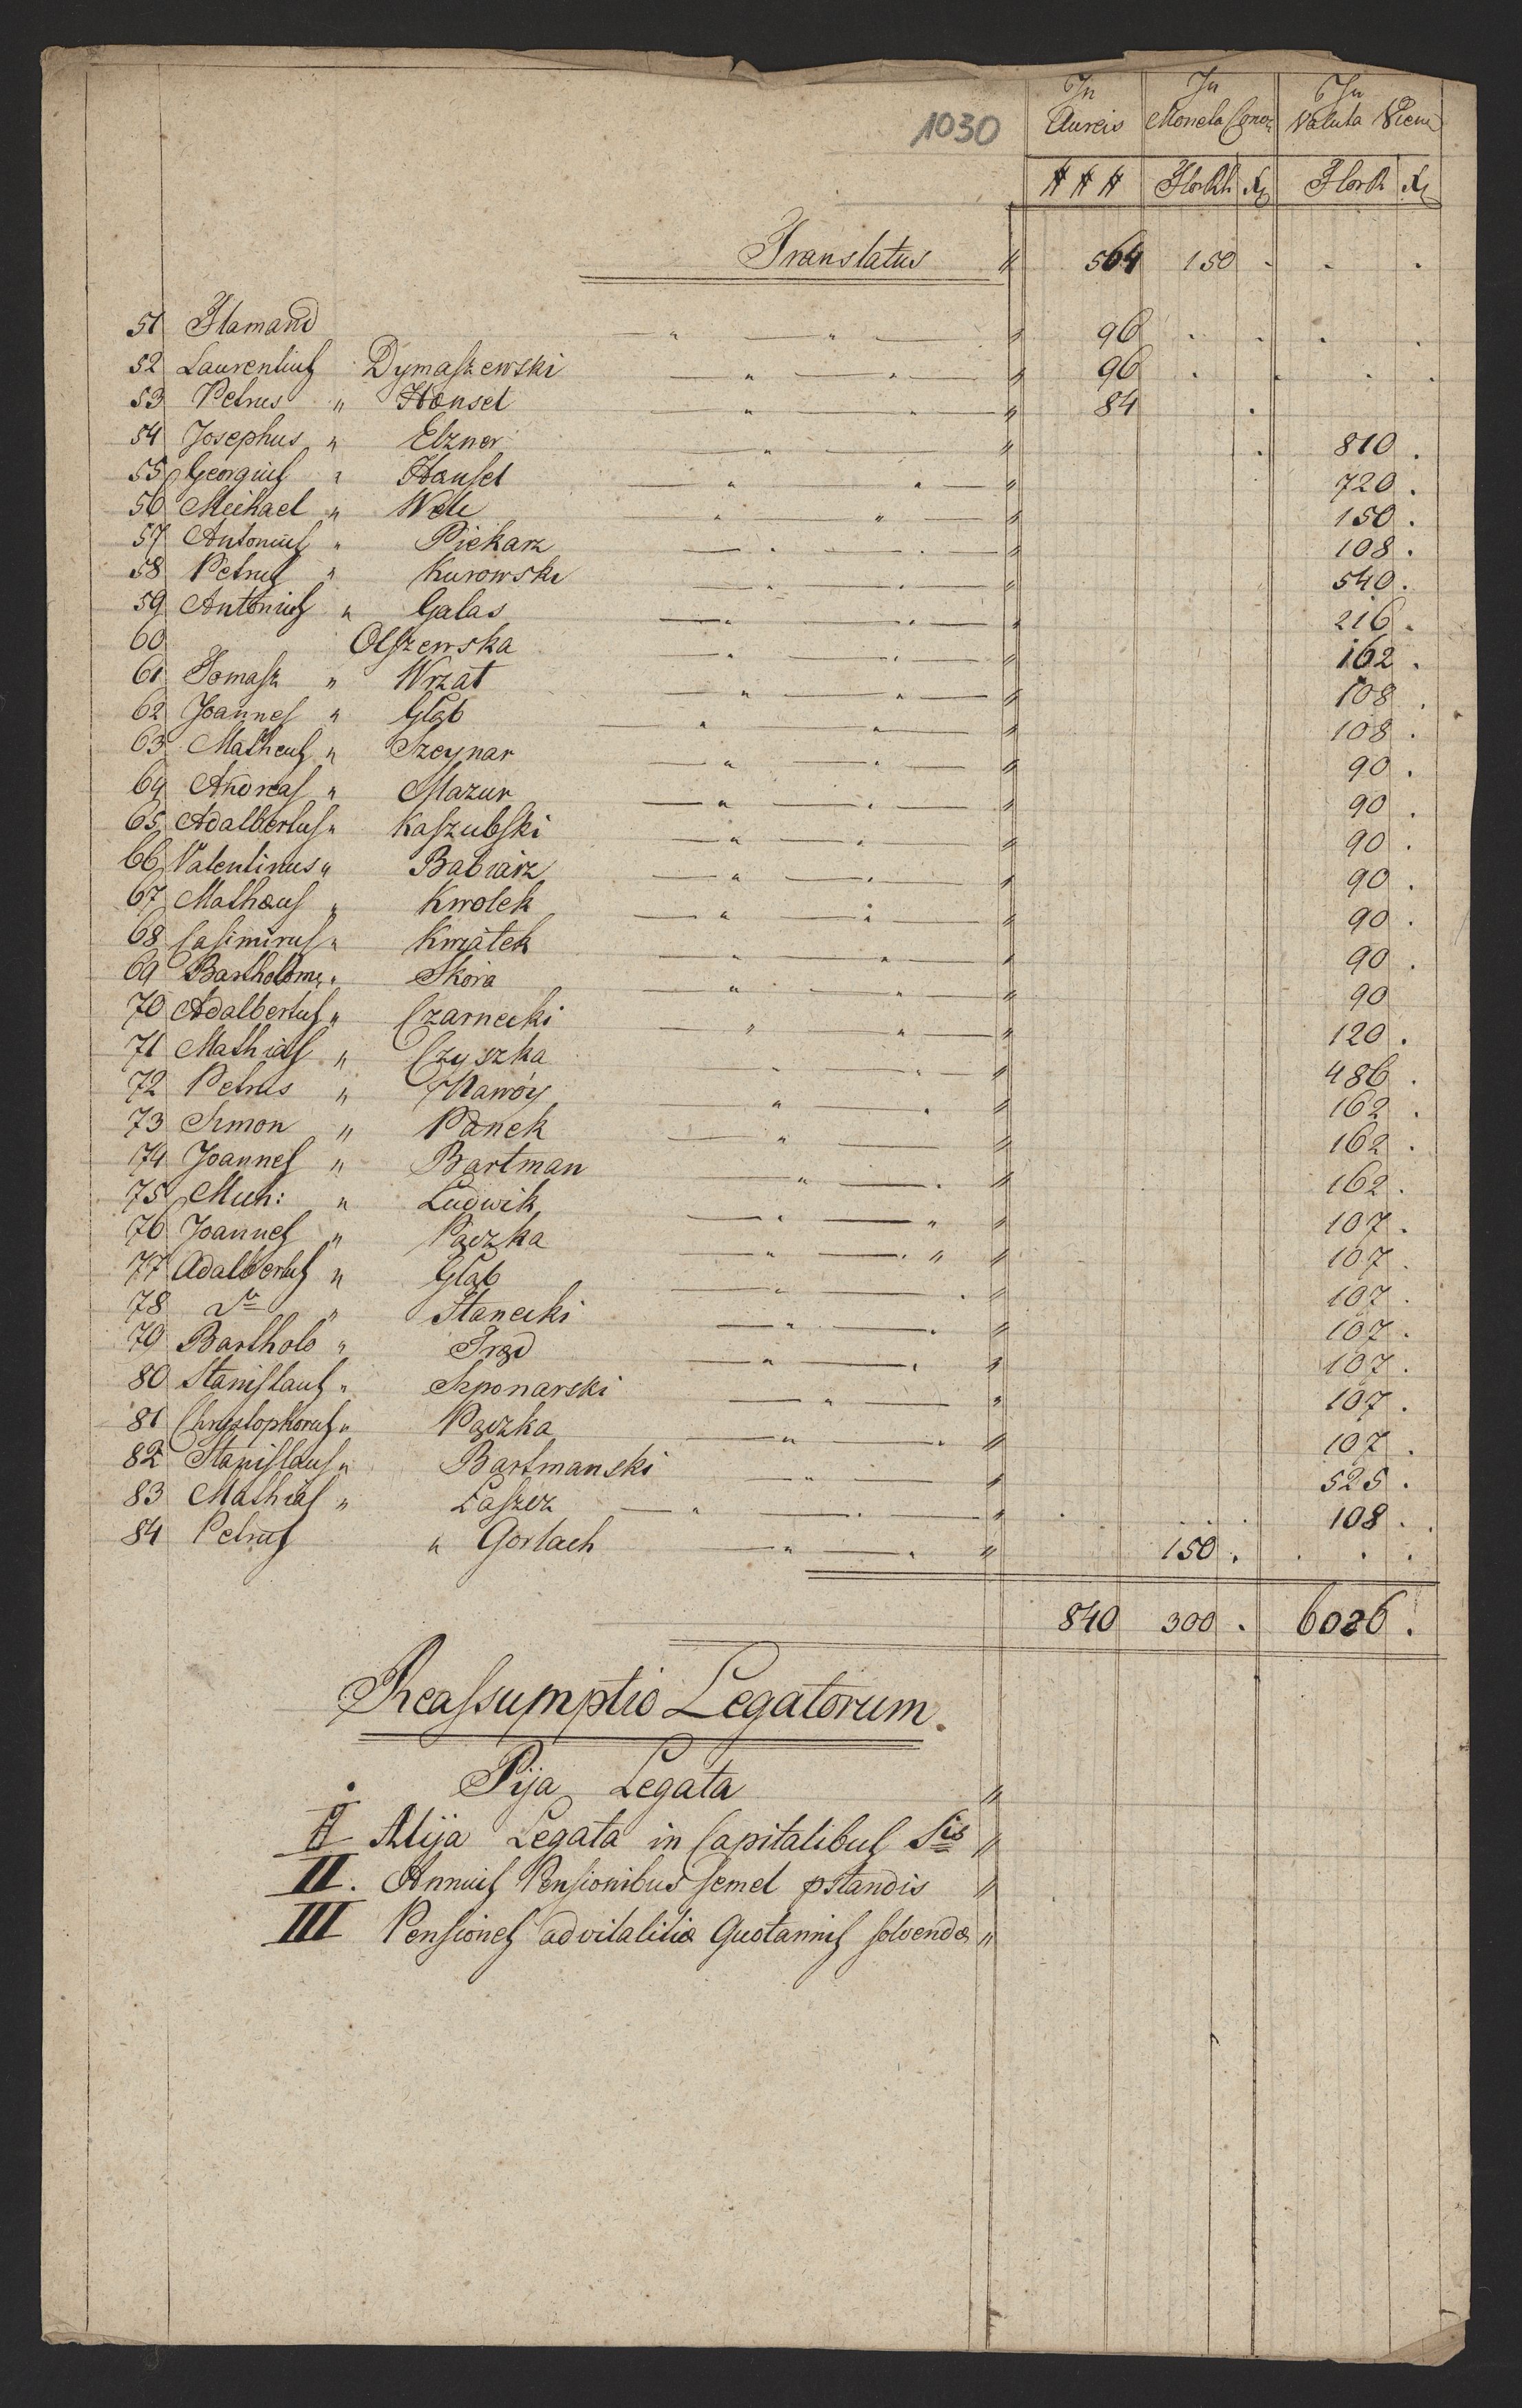 1030
In Aureis | In Moneta Conv: | In Valuta Vien:
### | FloRh Xr | FloRh Xr
Translatus 564 150 . . .
51 Flamand 96 . . . .
52 Laurentius Dymaszewski 96 . . . .
53 Petrus " Hansel 84 .
54 Josephus " Elzner 810 .
55 Georgius " Hansel 720 .
56 Michael " 150 .
57 Antonius " Piekarz 108 .
58 Petrus " Kurowski 540 .
59 Antonius " Galas 216 .
60 Olszewska 162 .
61 Tomasz " Wrzat 108 .
62 Joannes " Gląb 108 .
63 Matheus " Szeynar 90 .
64 Andreas " Mazur 90 .
65 Adalbertus " Kaszubski 90 .
66 Valentinus " Babiarz 90 .
67 Mathæus " Kwolek 90 .
68 Casimirus " Kwiatek 90 .
69 Bartholom: " Skóra 90
70 Adalbertus " Czarnecki 120 .
71 Mathias " Czyszka 486 .
72 Petrus " Nawóy 162 .
73 Simon " Panek 162 .
74 Joannes " Bartman 162 .
75 Mich: " Ludwik 107 .
76 Joannes " Pączka 107 .
77 Adalbertus " Gląb 107 .
78 do " Stanecki 107 .
79 Bartholo " Trąd 107 .
80 Stanislaus " Szponarski 107 .
81 Chrystophorus " Pączka 107 .
82 Stanislaus " Bartmanski 525 .
83 Mathias " Laszcz . . . . 108 .
84 Petrus " Gorlach 150 . . . .
840 300 . 6026 .
Reassumptio Legatorum.
Pija Legata
I Alija Legata in Capitalibus Sis
II. Annuis Pensionibus semel pstandis
III Pensiones advitalitiæ Quotannis solvendæ